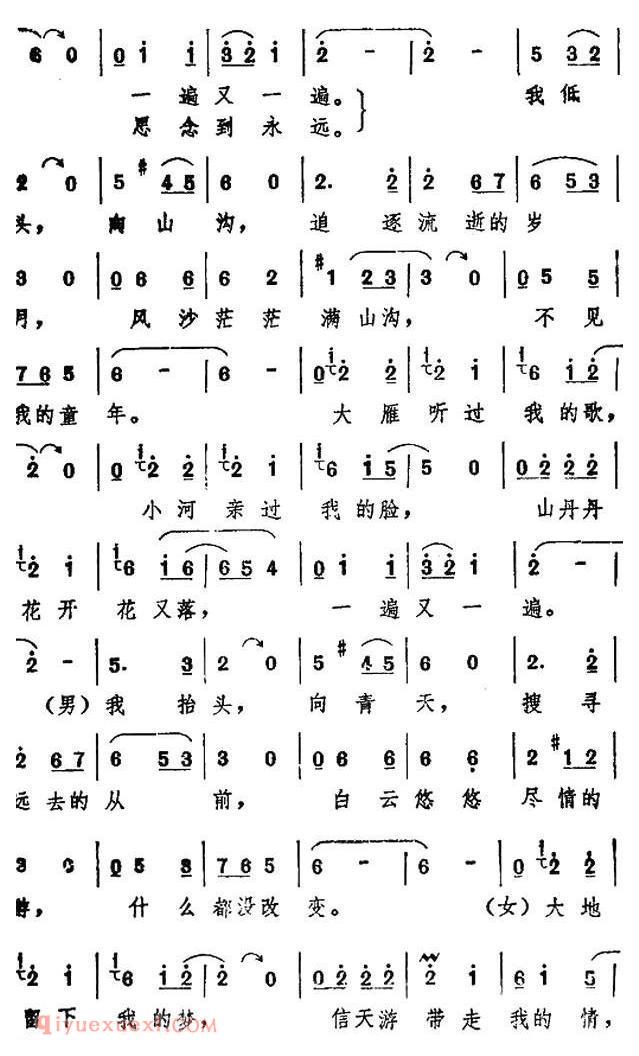 6 0 | 0 1 1 | 3 2 1 | 2 - | 2 - | 5 3 2 |
一遍又一遍。 我低
思念到永远。
2 0 | 5 #4 5 | 6 0 | 2. 2 | 2 6 7 | 6 5 3 |
头， 向山沟， 追逐流逝的岁
3 0 | 0 6 6 | 6 2 | #1 2 3 | 3 0 | 0 5 5 |
月， 风沙茫茫满山沟， 不见
7 6 5 | 6 - | 6 - | 0 2 2 | 2 1 | 6 1 2 |
我的童年。 大雁听过我的歌，
2 0 | 0 2 2 | 2 1 | 6 1 5 | 5 0 | 0 2 2 2 |
小河亲过我的脸， 山丹丹
2 1 | 6 1 6 | 6 5 4 | 0 1 1 | 3 2 1 | 2 - |
花开花又落， 一遍又一遍。
2 - | 5. 3 | 2 0 | 5 #4 5 | 6 0 | 2. 2 |
（男）我抬头， 向青天， 搜寻
2 6 7 | 6 5 3 | 3 0 | 0 6 6 | 6 6 | 2 #1 2 |
远去的从前， 白云悠悠尽情的
3 0 | 0 5 3 | 7 6 5 | 6 - | 6 - | 0 2 2 |
游， 什么都没改变。 （女）大地
2 1 | 6 1 2 | 2 0 | 0 2 2 2 | 2 1 | 6 1 5 |
留下我的梦， 信天游带走我的情，
qiyuexuexi.COM